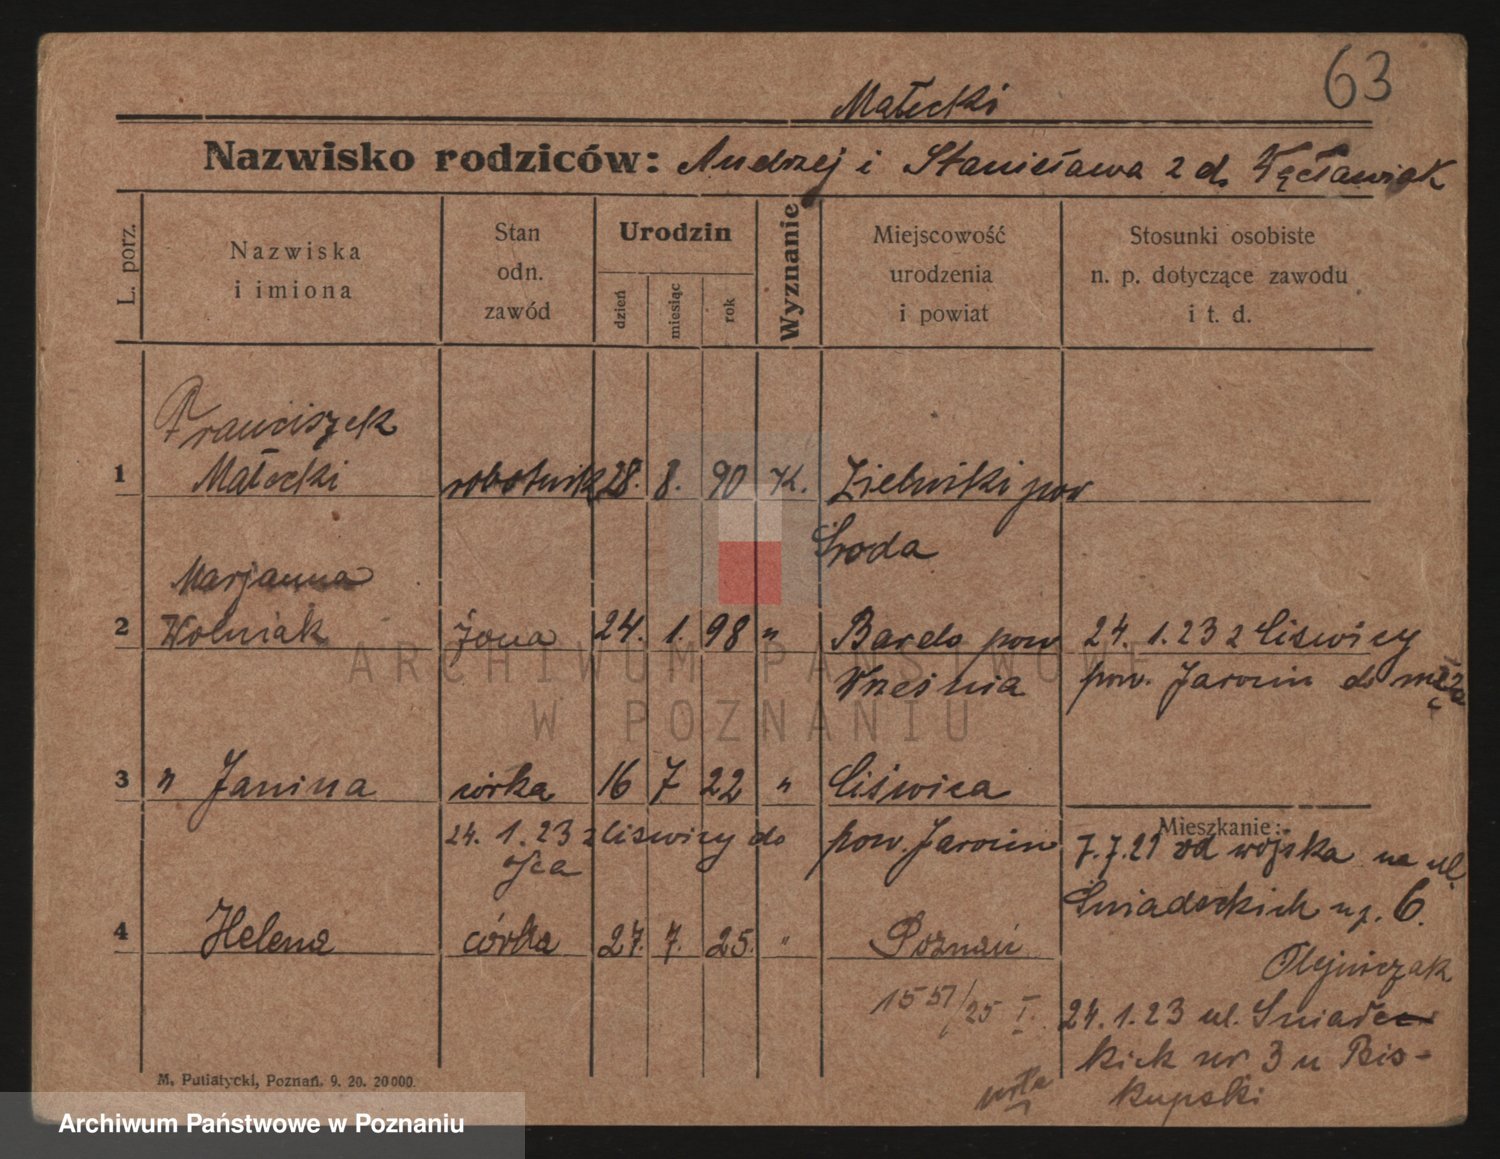 63
Małecki
Nazwisko rodziców: Andrzej i Stanisława z d. Węcławiak
L. porz.
Nazwiska
i imiona
Stan
odn.
zawód
Urodzin
dzień
miesiąc
rok
Wyznanie
Miejscowość
urodzenia
i powiat
Stosunki osobiste
n. p. dotyczące zawodu
i t. d.
Franciszek
1 Małecki robotnik 28. 8. 90 K. Zielniki pow
Środa
Marjanna
2 Wolniak żona 24. 1. 98 " Bardo pow 24. 1. 23 z Liświcy
Września pow. Jarocin do męża
3 " Janina córka 16 7 22 " Liświca
24. 1. 23 z Liświcy do pow. Jarocin
ojca
Mieszkanie:
7.7.21 od wojska na ul.
Śniadeckich nr. 6.
4 Helena córka 27. 7. 25. " Poznań
Olejniczak
1557/25 I.
24. 1. 23 ul. Śniadec
kich nr 3 u Bis-
kupski
M. Putiatycki, Poznań. 9. 20. 20000.
ARCHIWUM PAŃSTWOWE
W POZNANIU
Archiwum Państwowe w Poznaniu